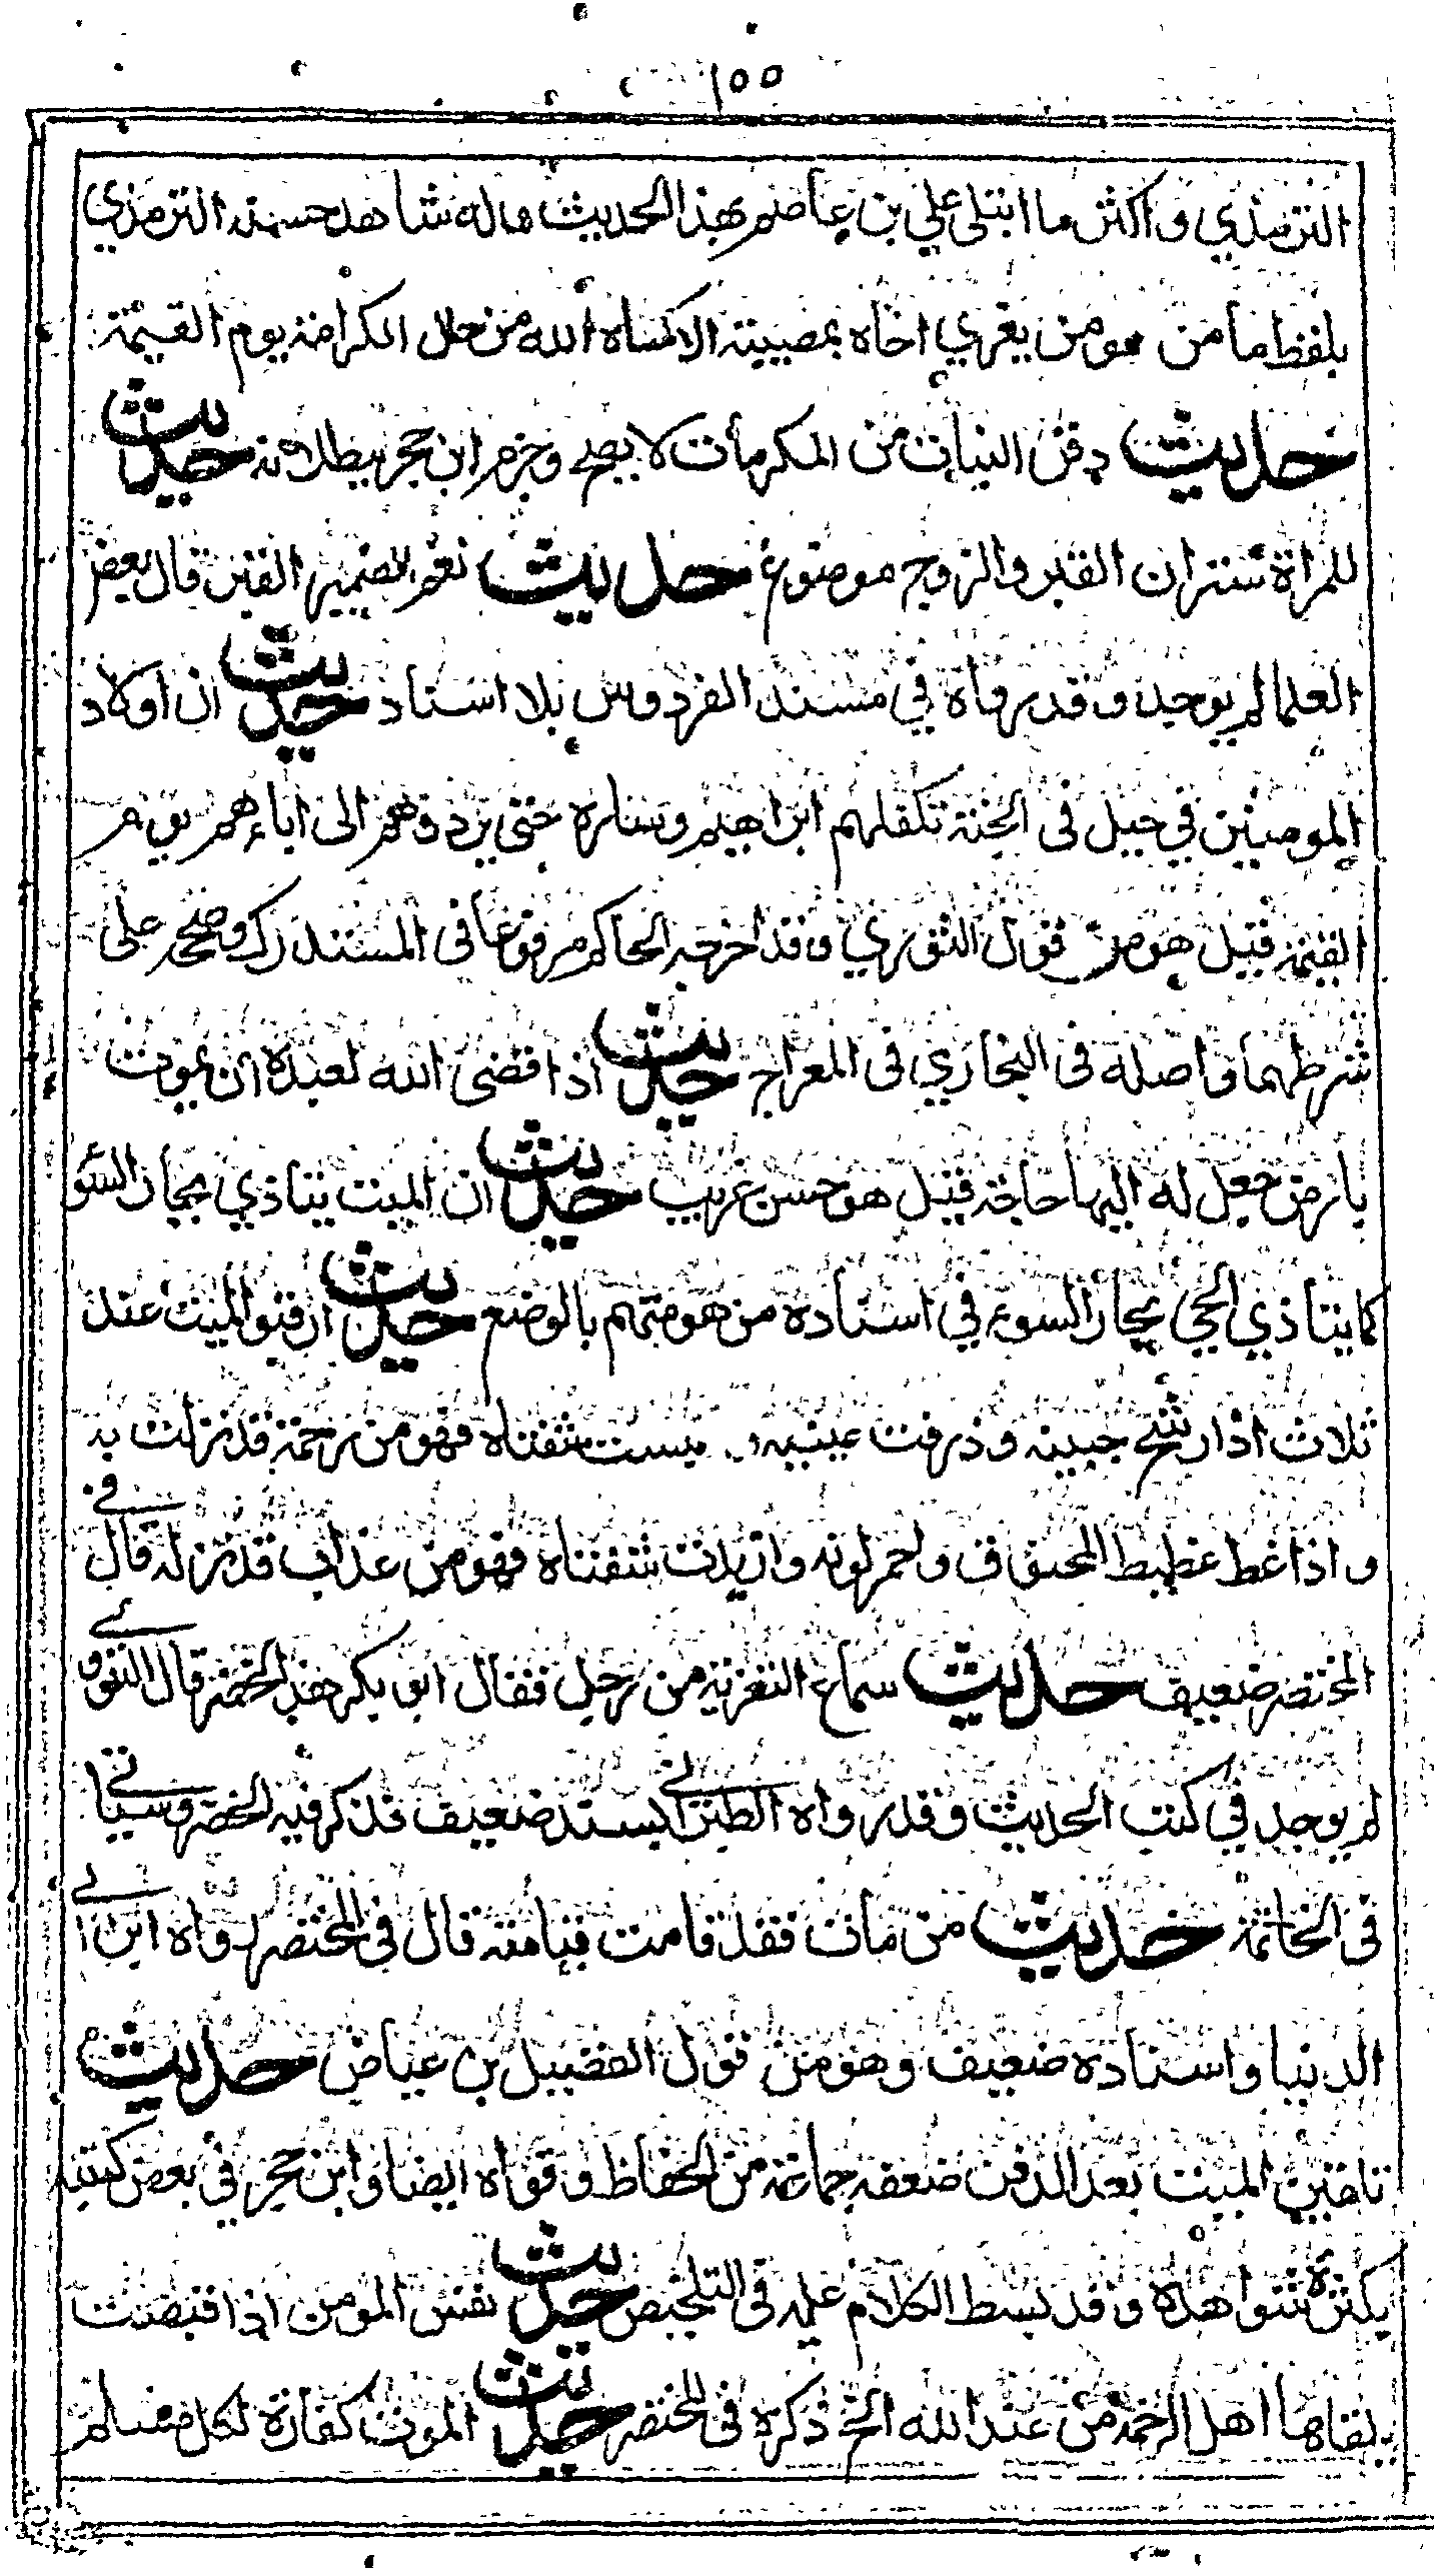 ١٥٥
الترمذي واكثر ما ابتلى علي بن عاصم بهذا الحديث وله شاهد حسنه الترمذي
بلفظ ما من مومن يعزي اخاه بمصيبته الا كساه الله من حلل الكرامة يوم القيمة
حديث دفن البنات من المكرمات لا يصح وجزم ابن حجر ببطلانه حديث
للمراة ستران القبر والزوج موضوع حديث نعم الصهير القبر قال بعض
العلما لم يوجد وقد رواه في مسند الفردوس بلا اسناد حديث ان اولاد
المومنين في جبل في الجنة تكفلهم ابراهيم وساره حتى يردوهم الى اباءهم يوم
القيمة قيل هو من قول الثوري وقد اخرجه الحاكم مرفوعا في المستدرك وصححه على
شرطهما واصله في البخاري في المعراج حديث اذا قضى الله لعبده ان يموت
بارض جعل له اليها حاجة قيل هو حسن غريب حديث ان الميت يتاذي بجار السو
كما يتاذي الحي بجار السوء في اسناده من هو متهم بالوضع حديث ارقبوا الميت عند
ثلاث اذا رشح جبينه وذرفت عينيه و يبست شفتاه فهو من رحمة قد نزلت به
واذا غط غطيط المخنوق واحمر لونه وازبدت شفتاه فهو من عذاب قد نزل له قال في
المختصر ضعيف حديث سماع التعزيه من رجل فقال ابو بكر هذا الخضر قال النووي
لم يوجد في كتب الحديث وقد رواه الطبراني بسند ضعيف قد ذكر فيه الخضر وسياتي
في الخاتمة حديث من مات فقد قامت قيامته قال في المختصر رواه ابن ابي
الدنيا واسناده ضعيف وهو من قول الفضيل بن عياض حديث
تلقين الميت بعد الدفن ضعفه جماعة من الحفاظ وقواه ايضا وابن حجر في بعض كتبه
بكثرة شواهده وقد بسط الكلام عليه في التلخيص حديث نفس المومن اذا قبضت
يلقاها اهل الرحمة من عند الله الخ ذكره في المختصر حديث الموت كفارة لكل مسلم